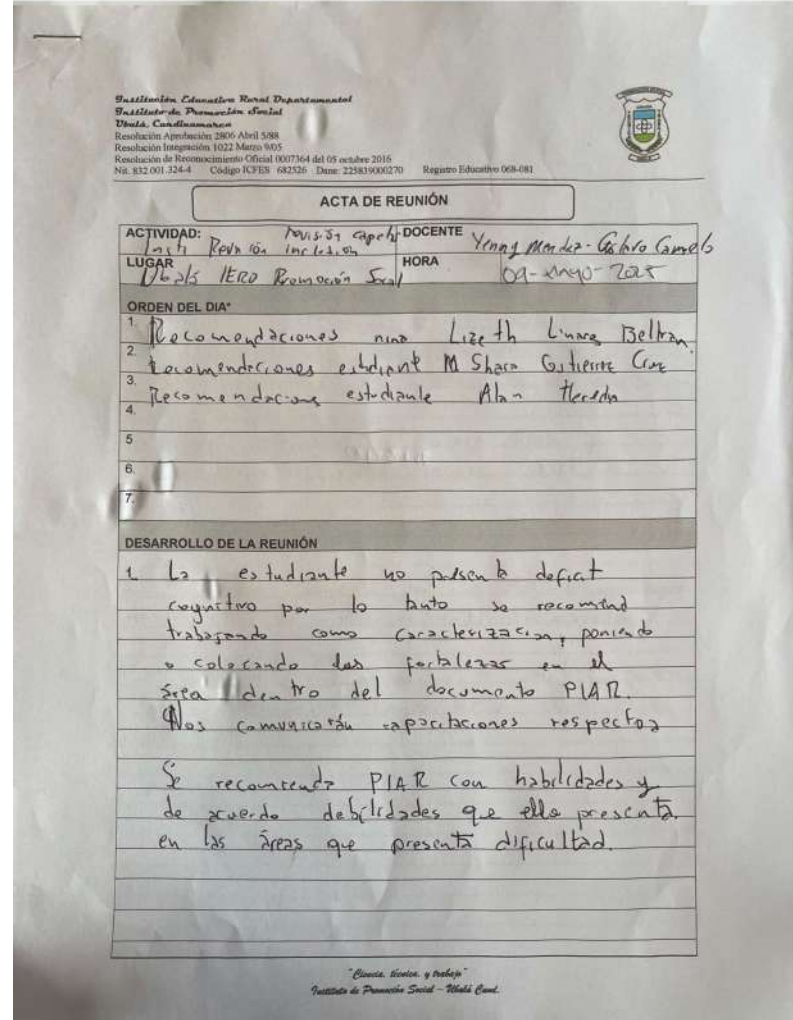 Institución Educativa Rural Departamental
Instituto de Promoción Social
Ubalá, Cundinamarca
Resolución Aprobación 2806 Abril 5/88
Resolución Integración 1022 Marzo 9/05
Resolución de Reconocimiento Oficial 0007364 del 05 octubre 2016
Nit. 832.001.324-4 Código ICFES 682526 Dane: 225839000270 Registro Educativo 068-081
ACTA DE REUNIÓN
ACTIVIDAD: Revisión DOCENTE Yenny Mendez - Gustavo Camelo
Reunión inclusión
LUGAR Ubalá IERD Promoción Social HORA 09-Mayo-2025
ORDEN DEL DIA*
1. Recomendaciones nina Lizeth Linares Beltran.
2. Recomendaciones estudiante M Shara Gutierrez Cruz
3. Recomendaciones estudiante Alan Heredia
4.
5
6.
7.
DESARROLLO DE LA REUNIÓN
1 La estudiante no presenta deficit
cognitivo por lo tanto se recomend
trabajando como caracterización, poniendo
o colocando las fortalezas en el
área dentro del documento PIAR.
Nos comunicarán capacitaciones respecto a
Se recomienda PIAR con habilidades y
de acuerdo debilidades que ella presenta.
en las áreas que presenta dificultad.
"Ciencia, técnica, y trabajo"
Instituto de Promoción Social – Ubalá Cund.